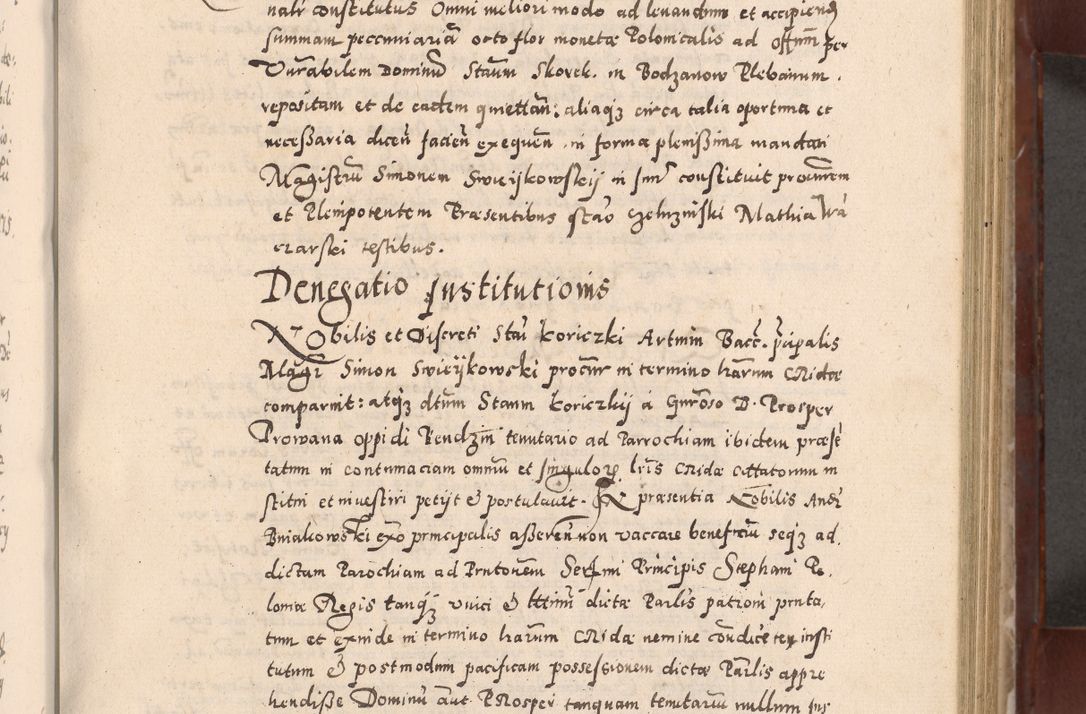 nalr constitutus Omni meliori modo ad levandum et accipiend
summam pecuniariā octo flor monetæ Polonicalis ad Offium per
Vnrabilem Dominū Staum Skorek. in Bodzanow Plebanum.
repositam et de eadem quiettan: aliaqz circa talia oportuna et
necessaria dicen facien exequen. in forma plenissima mandati
Magistrū Simonem Swieijkowskij in Jnr constituit procurem
et Plenipotentem Præsentibus stao Mathia Wa
czarski testibus.
Denegatio Institutionis
Nobilis et Discreti Stai Koriczki Artium Bacc. prcipalis
Magr Simon Swieijkowski procur in termino harum CRidæ
comparuit: atqz dtum Staum Koriczkij a Gnroso D. Prosper
Prowana oppidi Bendzin tenutario ad Parrochiam ibidem præse
tatum in contumaciam omniū et singulorz lris CRidæ citatorum in
stitui et investiri petijt & postulavit. Et præsentia Nobilis Andr
Bniakowski exo principalis asseren non vaccare beneficiū seqz ad
dictam Parochiam ad Pntonem Sermi Principis Stephani Po
loniæ Regis tanqz unici & lttimi dictæ Parlis patroni prnta,
tum et exinde in termino harum CRidæ nemine condicēte insti
tutum & postmodum pacificam possessionem dictæ Parlis appre
hendisse Dominū aut PROsper tanquam tenutariū nullum Jus